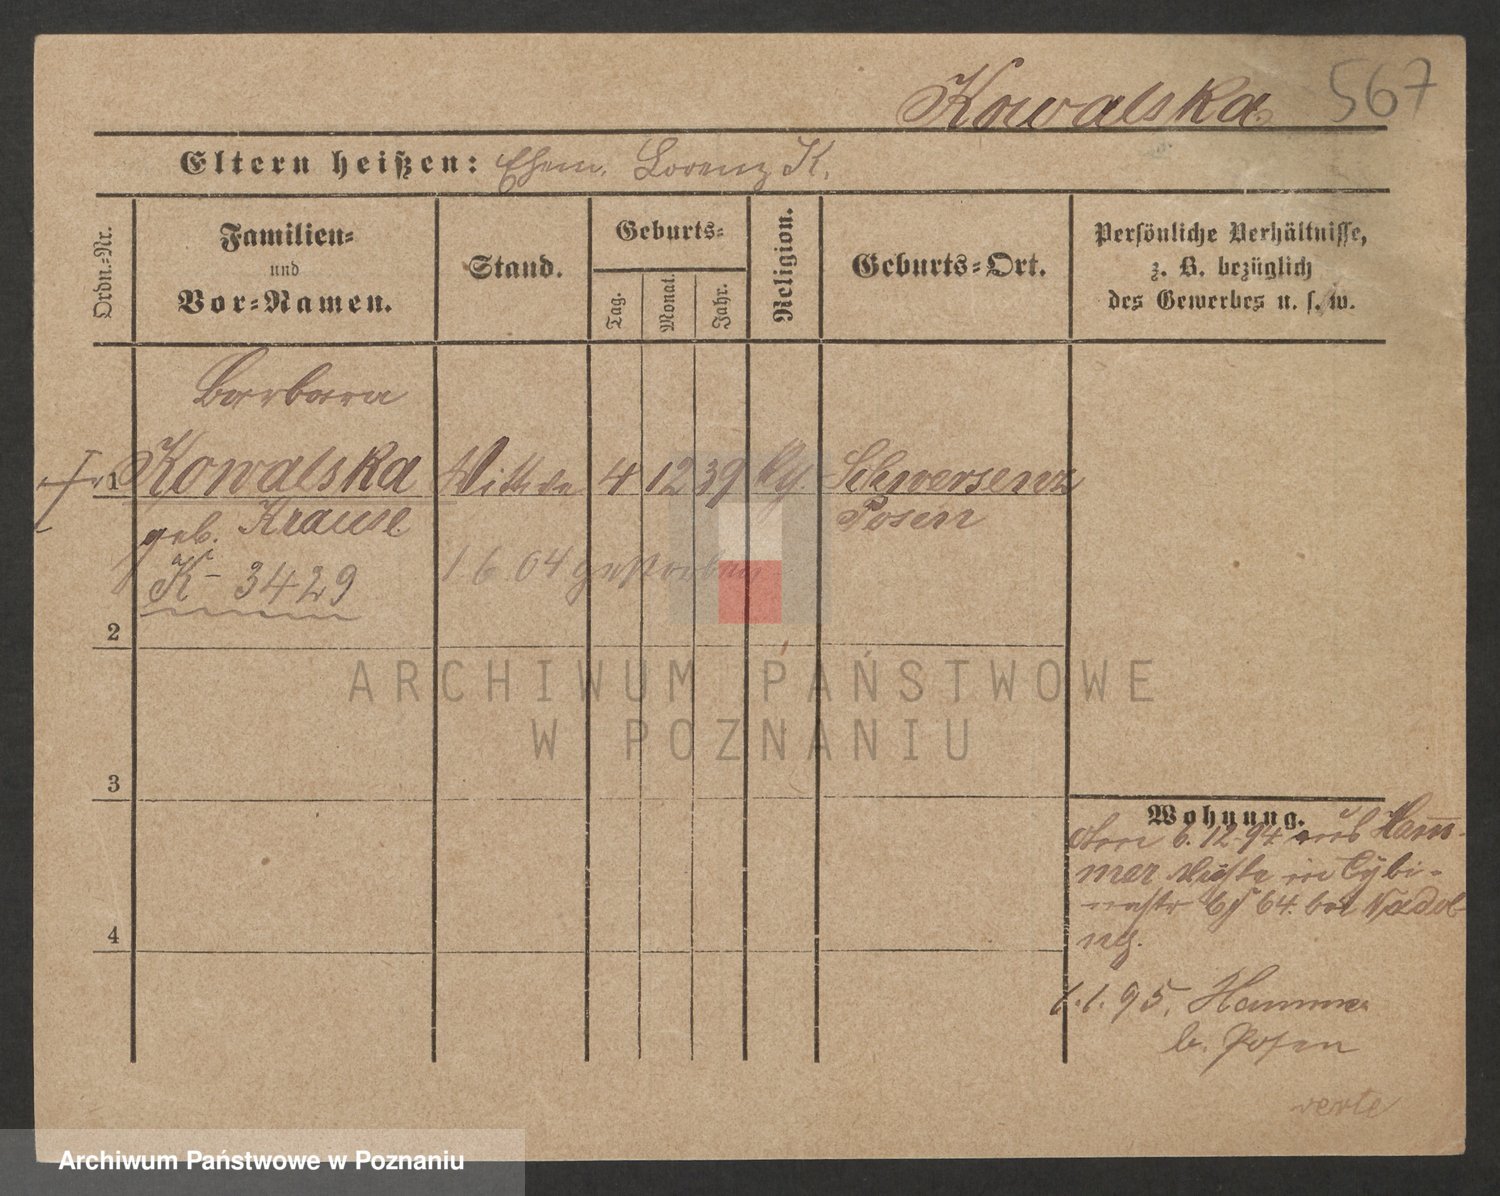 Kowalska
567
Eltern heißen: Ehem. Lorenz K.
Ordn.-Nr.
Familien-
und
Vor-Namen.
Stand.
Geburts-
Tag.
Monat.
Jahr.
Religion.
Geburts-Ort.
Persönliche Verhältnisse,
z. B. bezüglich
des Gewerbes u. s. w.
Barbara
1 Kowalska Wittwe 4 12 39 Schwersenz
geb. Krause Posen
K- 3429 1 6 04 gestorben
2
3
4
ARCHIWUM PAŃSTWOWE
W POZNANIU
Wohnung.
6.12.94 aus Ham-
mer in Cybi-
64. bei Nadol-
ny.
1.1.95. Hammer
b. Posen
verte
Archiwum Państwowe w Poznaniu